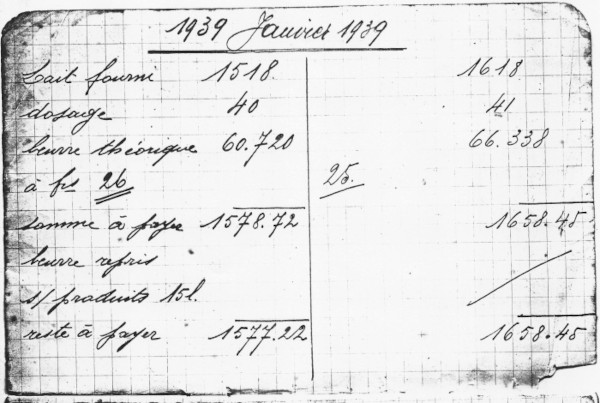 1939 Janvier 1939
Lait fourni 1518. 1618
dosage 40 41
beurre théorique 60.720 66.338
à frs 26 25.
somme à payer 1578.72 1658.45
beurre repris
s/produits 15l.
reste à payer 1577.22 1658.45